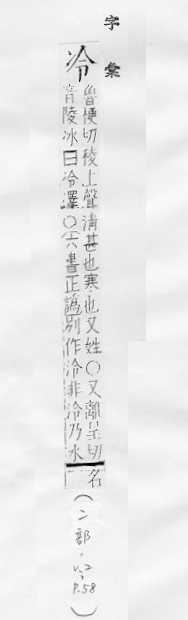 字彙
冷
魯梗切稜上聲清甚也寒也又姓○又離呈切
音陵冰曰冷澤○六書正譌別作泠非泠乃水
名
(冫部,
V.2,
P.58)